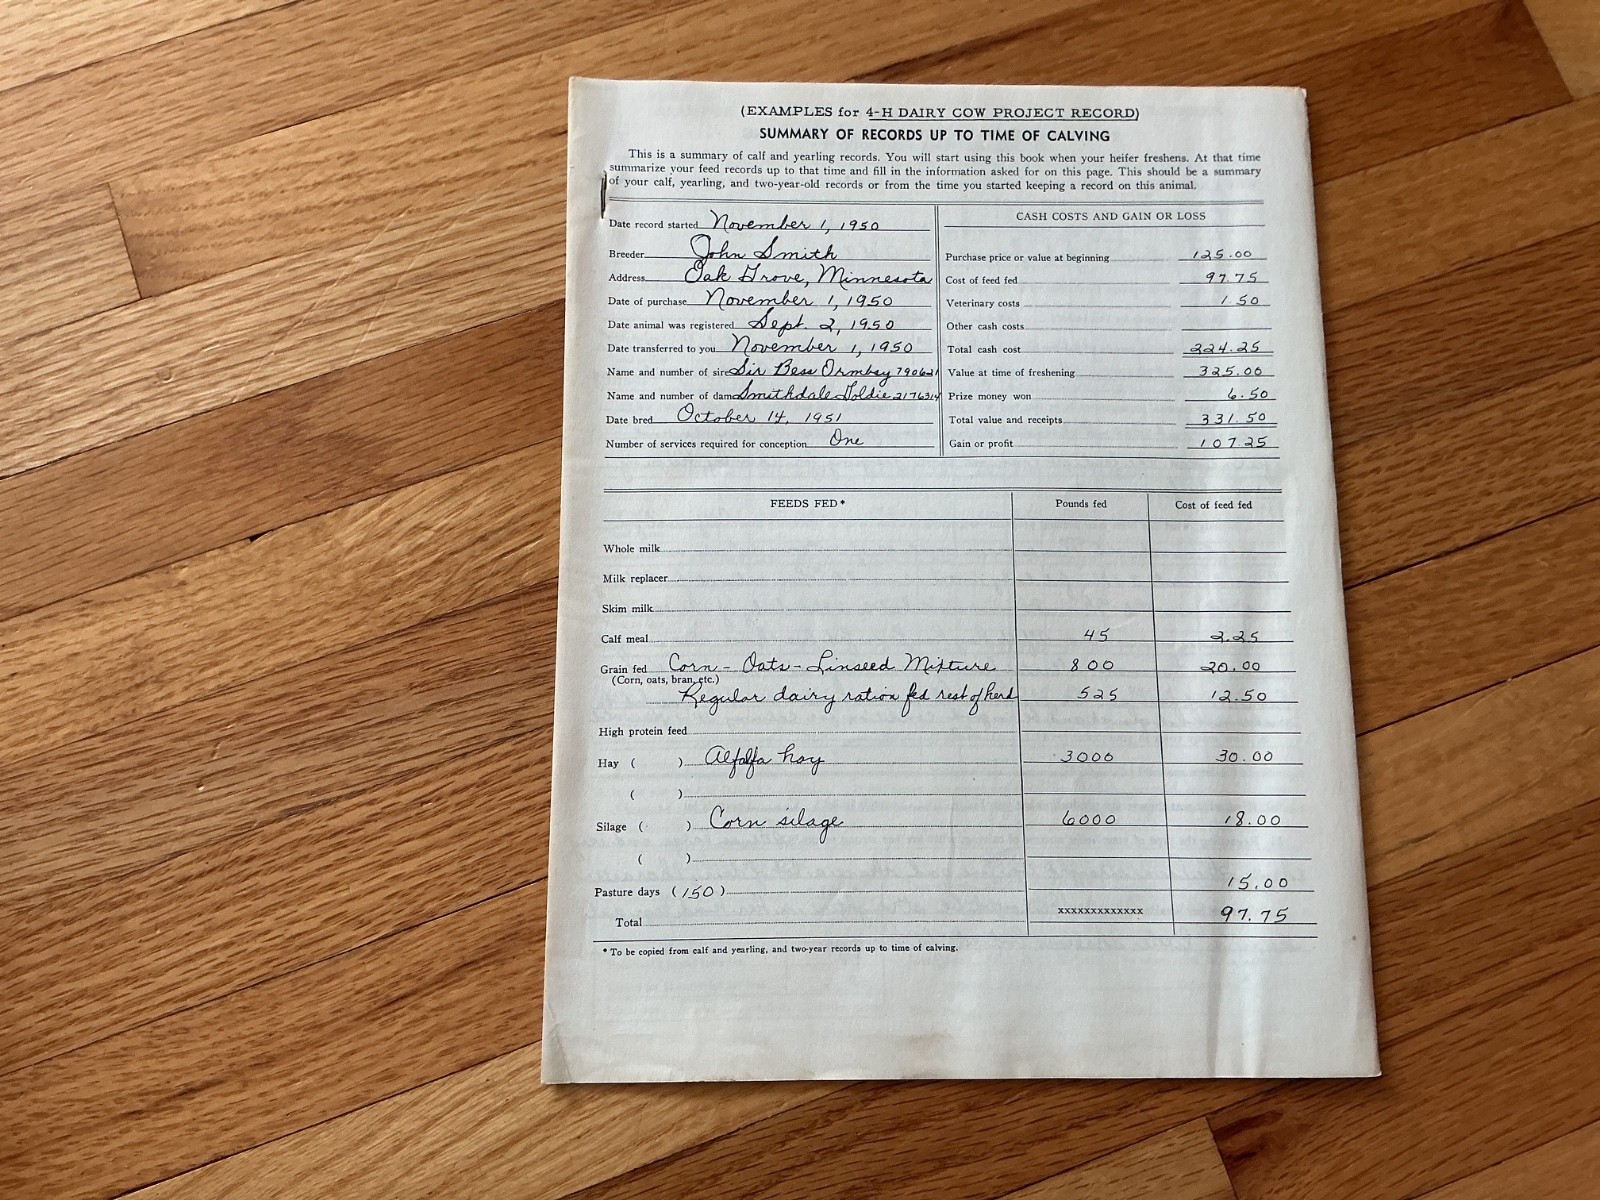 (EXAMPLES for 4-H DAIRY COW PROJECT RECORD)
SUMMARY OF RECORDS UP TO TIME OF CALVING
This is a summary of calf and yearling records. You will start using this book when your heifer freshens. At that time
summarize your feed records up to that time and fill in the information asked for on this page. This should be a summary
of your calf, yearling, and two-year-old records or from the time you started keeping a record on this animal.
Date record started November 1, 1950
Breeder John Smith
Address Oak Grove, Minnesota
Date of purchase November 1, 1950
Date animal was registered Sept. 2, 1950
Date transferred to you November 1, 1950
Name and number of sire Sir Bess Ormbsy 790621
Name and number of dam Smithdale Goldie 2176314
Date bred October 14, 1951
Number of services required for conception One
CASH COSTS AND GAIN OR LOSS
Purchase price or value at beginning 125.00
Cost of feed fed 97.75
Veterinary costs 1.50
Other cash costs
Total cash cost 224.25
Value at time of freshening 325.00
Prize money won 6.50
Total value and receipts 331.50
Gain or profit 107.25
FEEDS FED* Pounds fed Cost of feed fed
Whole milk
Milk replacer
Skim milk
Calf meal 45 2.25
Grain fed Corn - Oats - Linseed Mixture 800 20.00
(Corn, oats, bran, etc.)
Regular dairy ration fed rest of herd 525 12.50
High protein feed
Hay ( ) Alfalfa hay 3000 30.00
( )
Silage ( ) Corn silage 6000 18.00
( )
Pasture days (150) 15.00
Total xxxxxxxxxxxxx 97.75
* To be copied from calf and yearling, and two-year records up to time of calving.